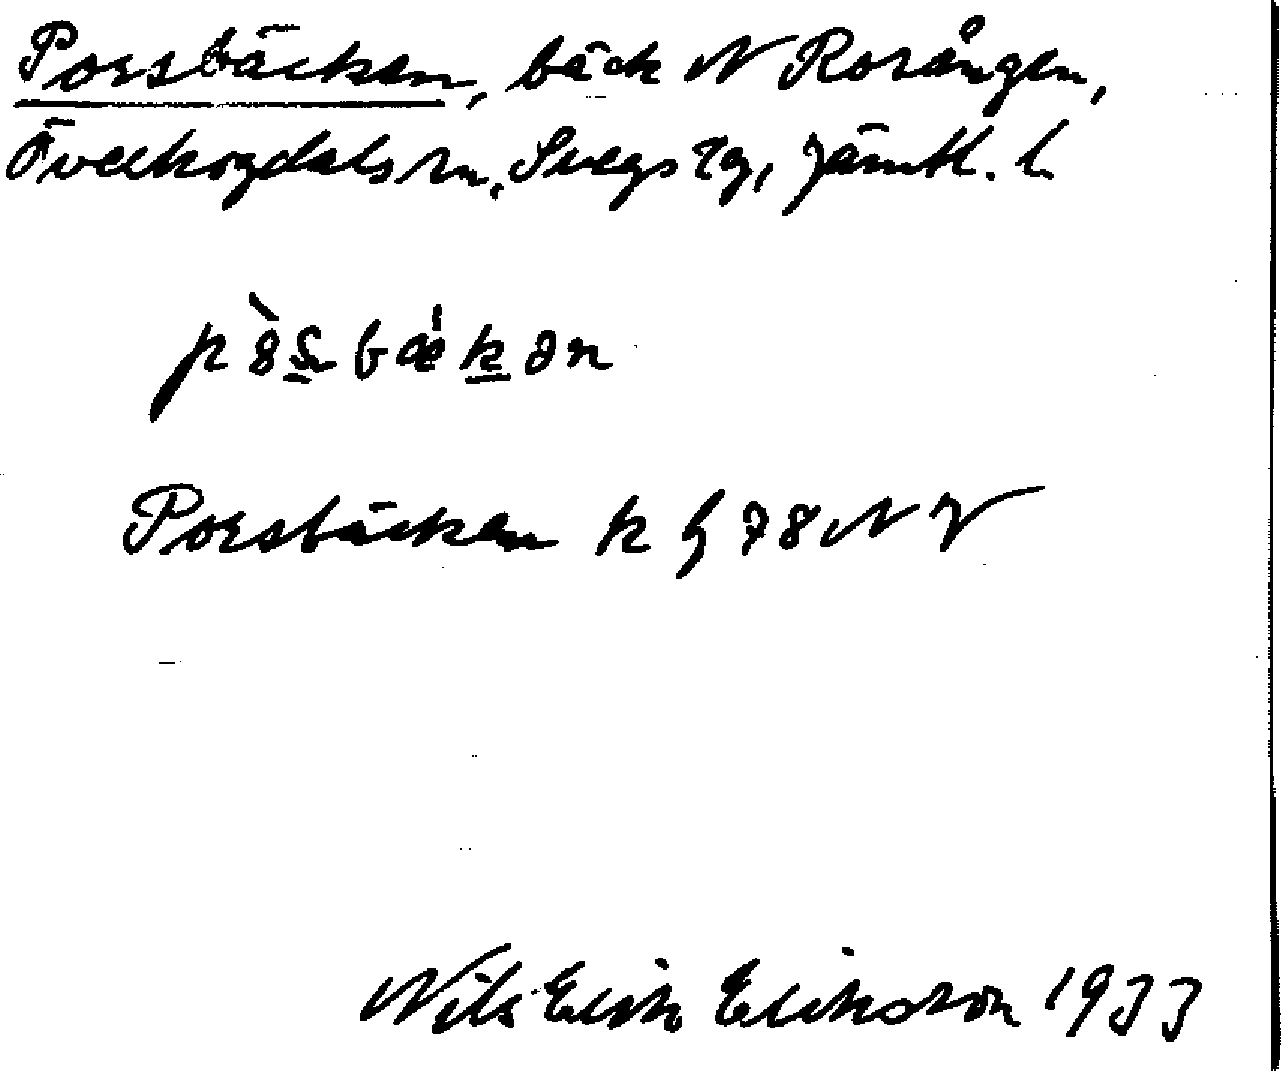 Porsbäcken, bäck N Rorången,
Överhogdals sn, Svegs tg, Jämtl. l.
Porsbäcken k bl 78 NV
Nils Erik Eriksson 1933